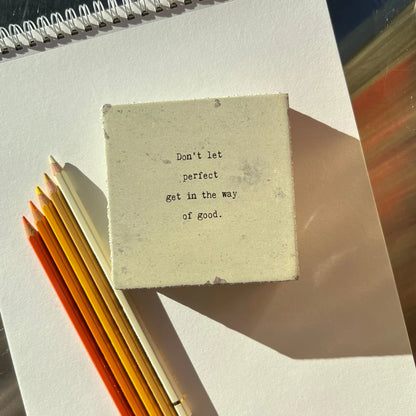 Don't let
perfect
get in the way
of good.